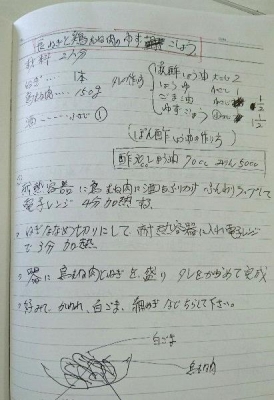 長ねぎと鶏むね肉のゆずこしょう
材料 2人分
ねぎ…… 1本
鶏むね肉…… 150g
酒 —— 小さじ ①
タレの作り方
ぽん酢しょう油 大さじ2
しょうゆ
ごま油 1/2
ゆずこしょう 1/2
(ぽん酢しょう油の作り方)
酢 しょう油 70cc みりん 50cc
耐熱容器に鶏むね肉に酒をふりかけ ふんわりラップして
電子レンジ 4分加熱
ねぎななめ切りにして 耐熱容器に入れ電子レンジ
で3分加熱
器に鶏むね肉とねぎを盛り タレをかけて完成
好みで 白ごま、細ねぎ などちらして下さい。
白ごま
鶏むね肉